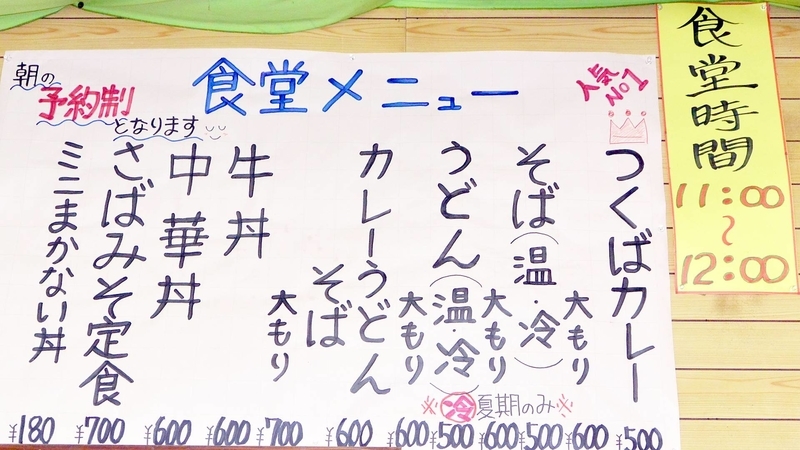 食堂メニュー
朝の
予約制
となります
人気
No1
つくばカレー ¥500
大もり ¥600
そば(温・冷) ¥500
大もり ¥600
うどん(温・冷) ¥500
大もり ¥600
カレーうどん
そば ¥600
大もり ¥700
牛丼 ¥600
中華丼 ¥600
さばみそ定食 ¥700
ミニまかない丼 ¥180
※冷夏期のみ※
食堂時間
11:00
~
12:00